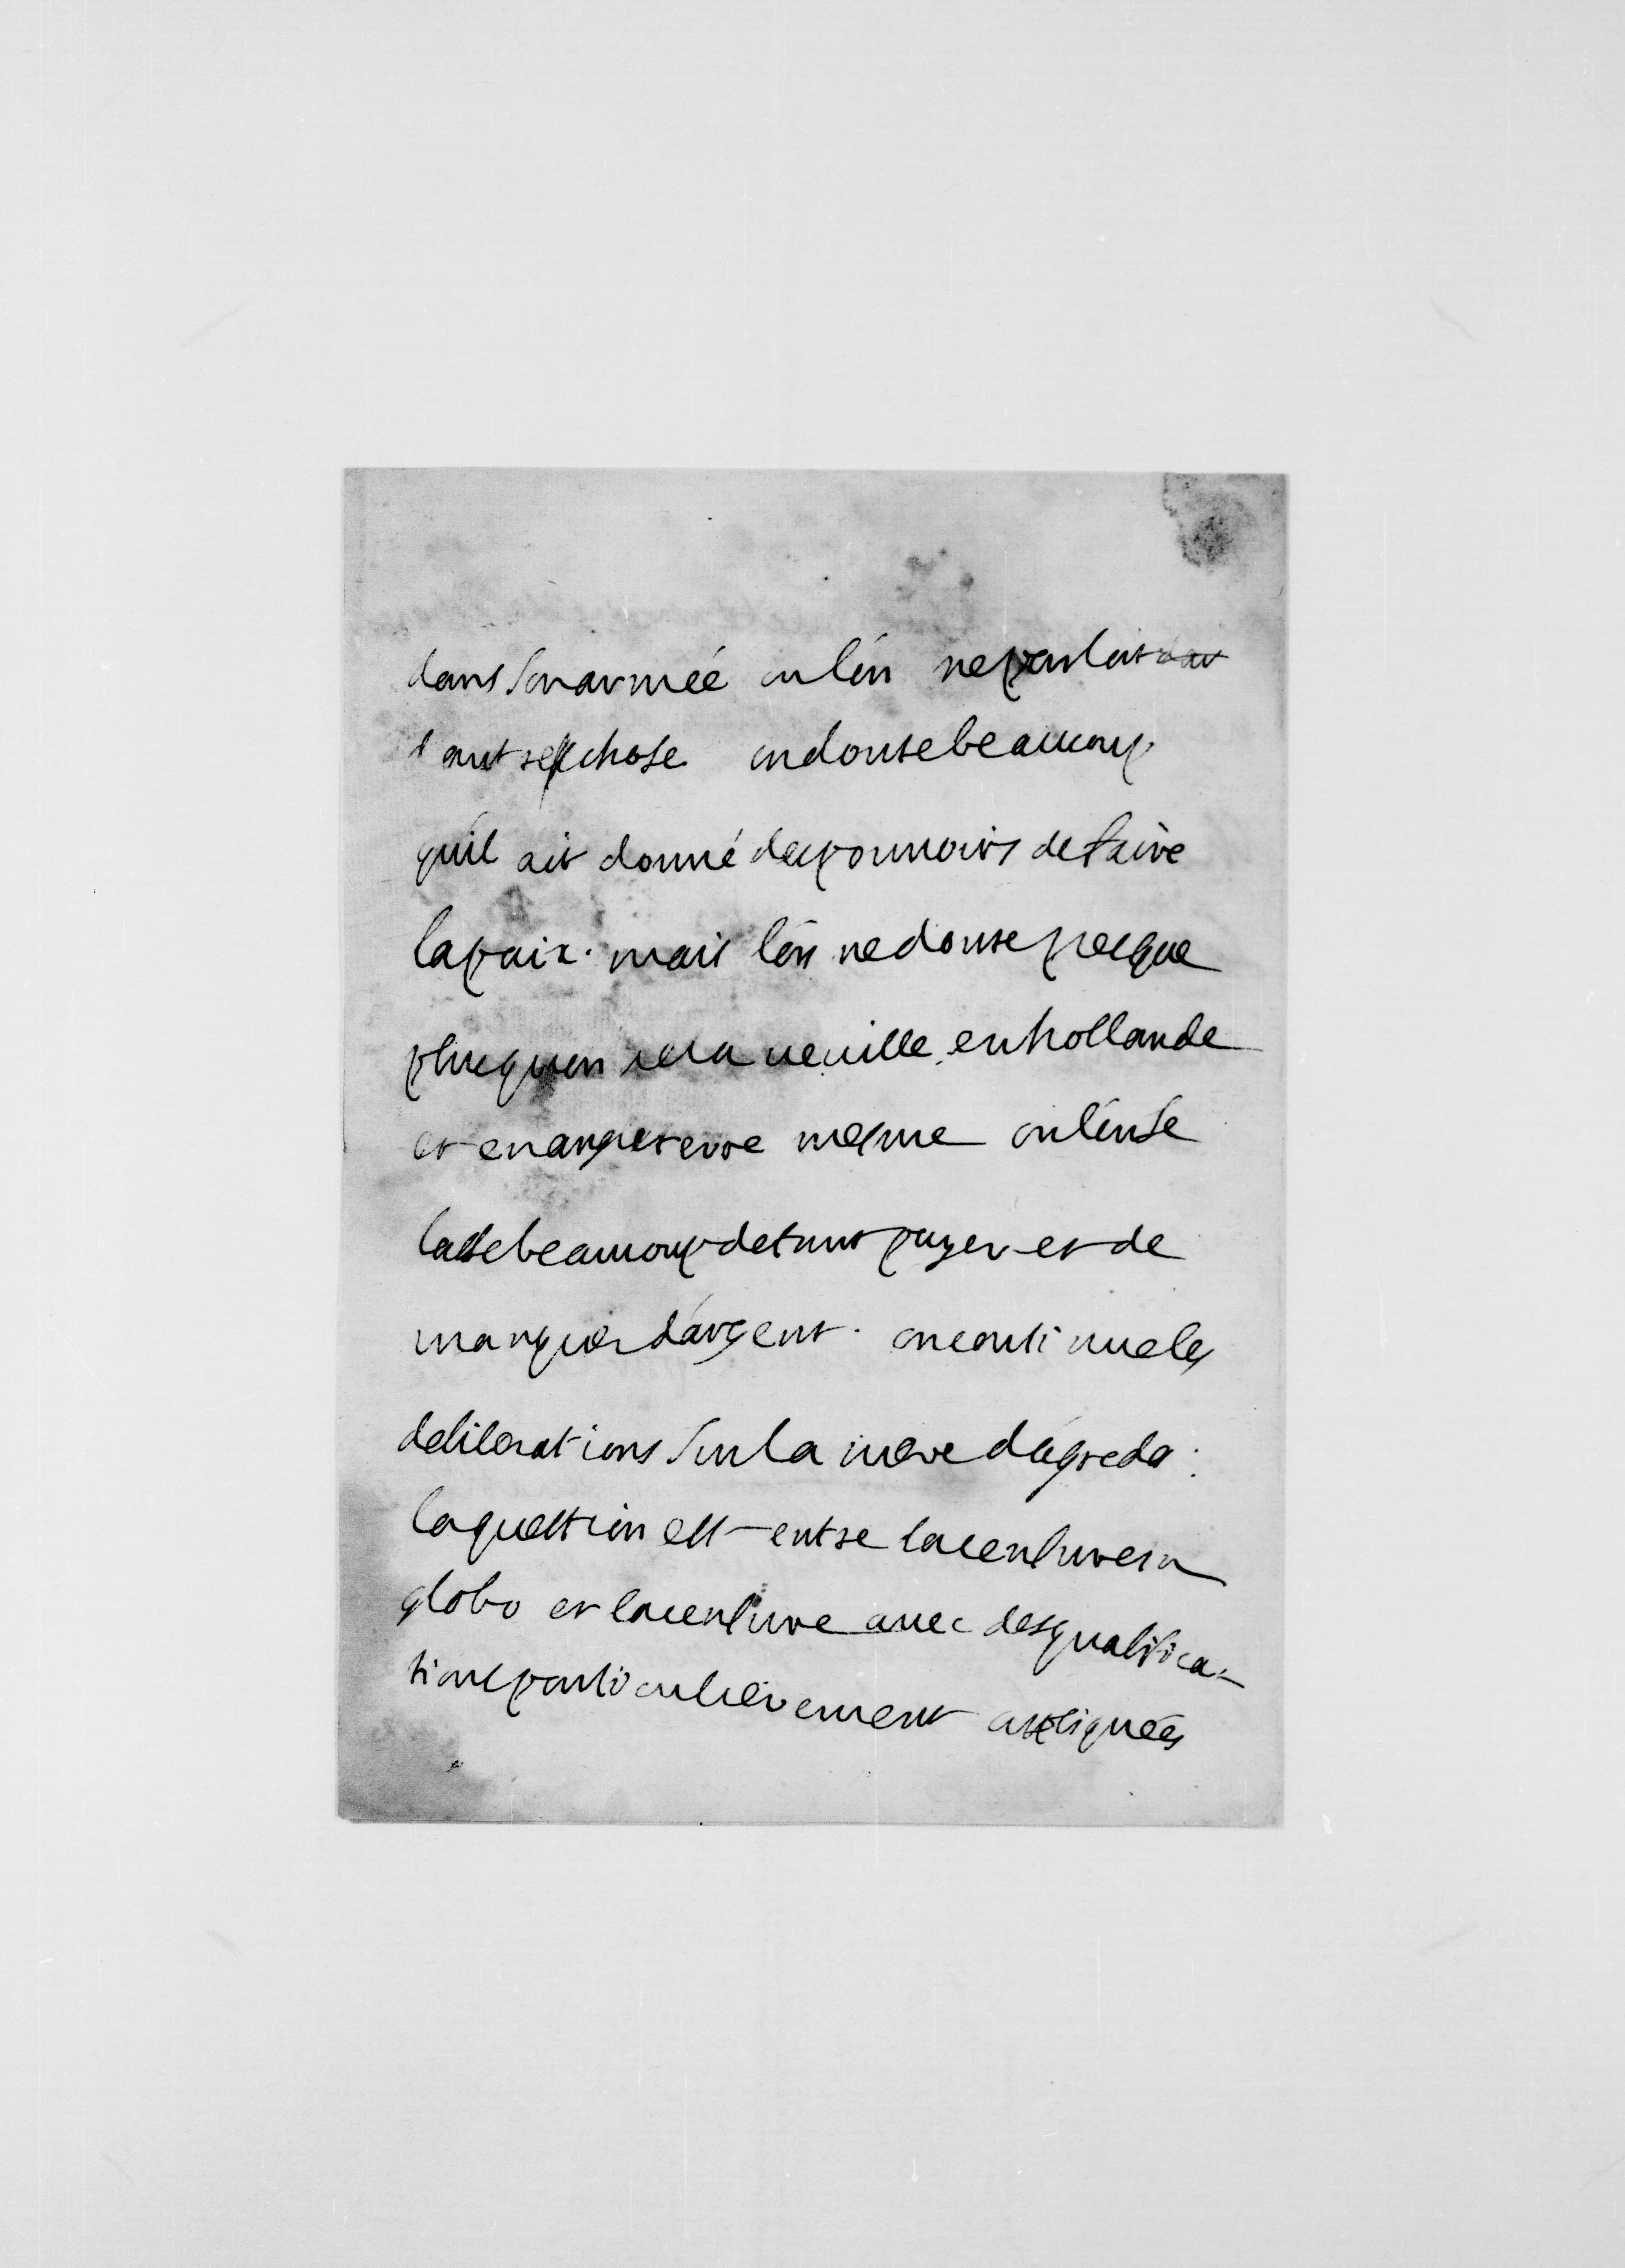 dans son armée ou lón ne parloit
d autre chose on doute beaucoup
quíl ait donné des pouuoirs de faire
la paix. mais lón ne doute pas que
plus quon ne la ueuille en hollande
et en angleterre mesme ou lón se
lasse beaucoup de tant payer et de
manquer dárgent. on continue les
deliberations sur la mere dágreda:
la question est entre la censure in
globo et la censure auec des qualifica-
tions particulierement appliquées